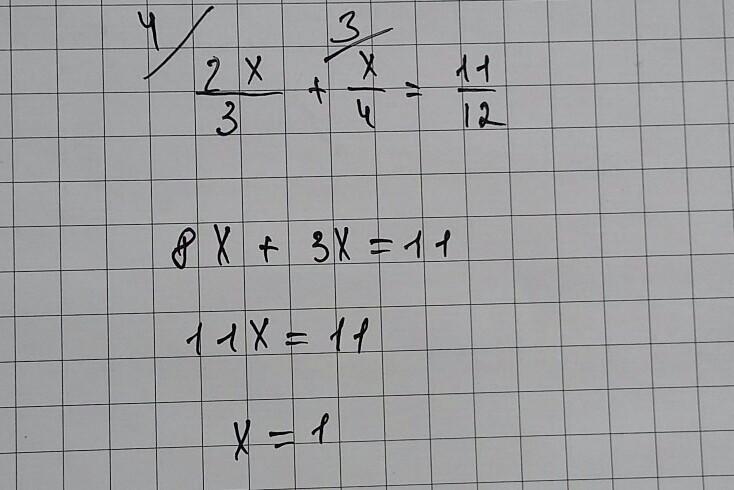 4/ 2x/3 + 3/ x/4 = 11/12
8x + 3x = 11
11x = 11
x = 1